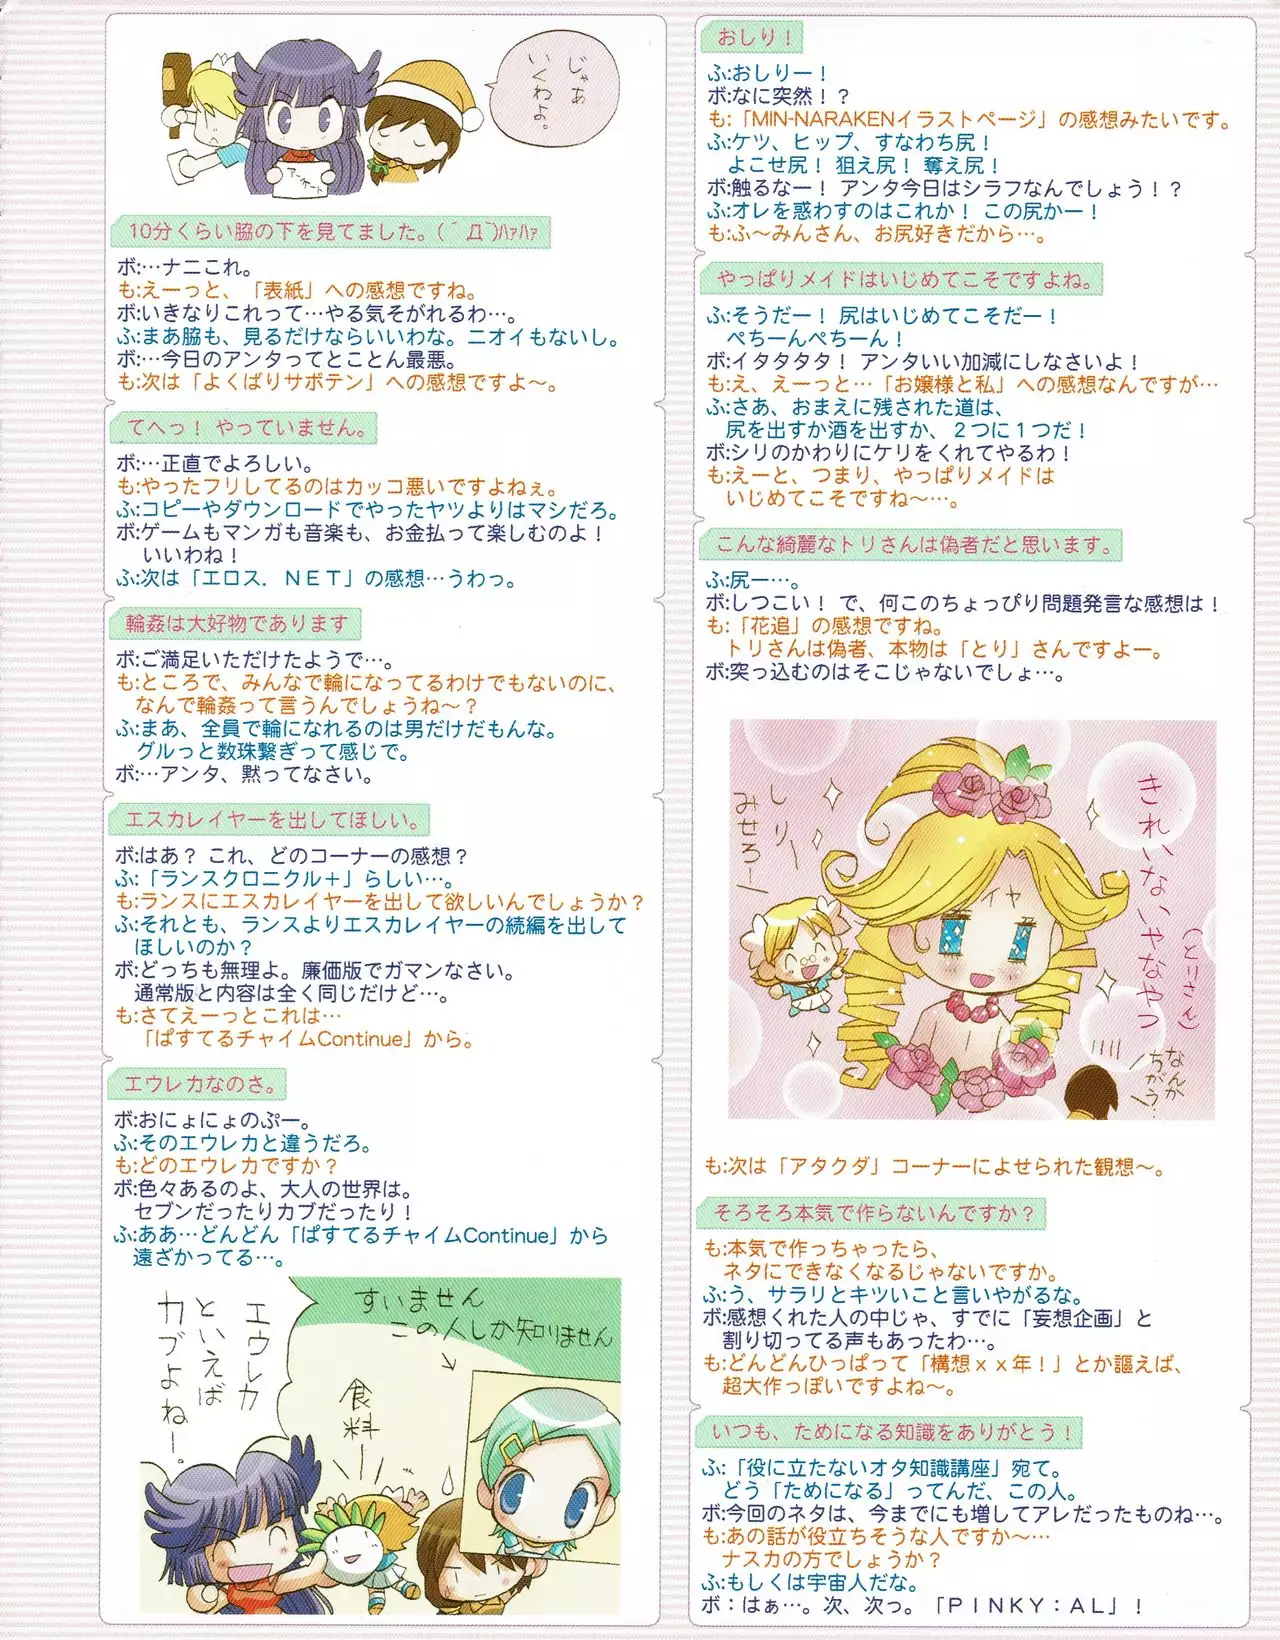 じゃあ
いくわよ。
アンケート
10分くらい脇の下を見てました。(´Д`)ﾊｧﾊｧ
ボ:…ナニこれ。
も:えーっと、「表紙」への感想ですね。
ボ:いきなりこれって…やる気そがれるわ…。
ふ:まあ脇も、見るだけならいいわな。ニオイもないし。
ボ:…今日のアンタってとことん最悪。
も:次は「よくばりサボテン」への感想ですよ〜。
てへっ！ やっていません。
ボ:…正直でよろしい。
も:やったフリしてるのはカッコ悪いですよねぇ。
ふ:コピーやダウンロードでやったヤツよりはマシだろ。
ボ:ゲームもマンガも音楽も、お金払って楽しむのよ！
いいわね！
ふ:次は「エロス．ＮＥＴ」の感想…うわっ。
輪姦は大好物であります
ボ:ご満足いただけたようで…。
も:ところで、みんなで輪になってるわけでもないのに、
なんで輪姦って言うんでしょうね〜？
ふ:まあ、全員で輪になれるのは男だけだもんな。
グルっと数珠繋ぎって感じで。
ボ:…アンタ、黙ってなさい。
エスカレイヤーを出してほしい。
ボ:はあ？ これ、どのコーナーの感想？
ふ:「ランスクロニクル＋」らしい…。
も:ランスにエスカレイヤーを出して欲しいんでしょうか？
ふ:それとも、ランスよりエスカレイヤーの続編を出して
ほしいのか？
ボ:どっちも無理よ。廉価版でガマンなさい。
通常版と内容は全く同じだけど…。
も:さてえーっとこれは…
「ぱすてるチャイムContinue」から。
エウレカなのさ。
ボ:おにょにょのぷー。
ふ:そのエウレカと違うだろ。
も:どのエウレカですか？
ボ:色々あるのよ、大人の世界は。
セブンだったりカブだったり！
ふ:ああ…どんどん「ぱすてるチャイムContinue」から
遠ざかってる…。
エウレカ
といえば
カブよねー。
すいません
この人しか知りません
食料ー
おしり！
ふ:おしりー！
ボ:なに突然！？
も:「MIN-NARAKENイラストページ」の感想みたいです。
ふ:ケツ、ヒップ、すなわち尻！
よこせ尻！ 狙え尻！ 奪え尻！
ボ:触るなー！ アンタ今日はシラフなんでしょう！？
ふ:オレを惑わすのはこれか！ この尻かー！
も:ふ〜みんさん、お尻好きだから…。
やっぱりメイドはいじめてこそですよね。
ふ:そうだー！ 尻はいじめてこそだー！
ぺちーんぺちーん！
ボ:イタタタタ！ アンタいい加減にしなさいよ！
も:え、えーっと…「お嬢様と私」への感想なんですが…
ふ:さあ、おまえに残された道は、
尻を出すか酒を出すか、２つに１つだ！
ボ:シリのかわりにケリをくれてやるわ！
も:えーと、つまり、やっぱりメイドは
いじめてこそですね〜…。
こんな綺麗なトリさんは偽者だと思います。
ふ:尻ー…。
ボ:しつこい！ で、何このちょっぴり問題発言な感想は！
も:「花追」の感想ですね。
トリさんは偽者、本物は「とり」さんですよー。
ボ:突っ込むのはそこじゃないでしょ…。
きれいないやなやつ
(とりさん)
しりー
みせろー
イヤ
なんか
ちがう…
も:次は「アタクダ」コーナーによせられた観想〜。
そろそろ本気で作らないんですか？
も:本気で作っちゃったら、
ネタにできなくなるじゃないですか。
ふ:う、サラリとキツいこと言いやがるな。
ボ:感想くれた人の中じゃ、すでに「妄想企画」と
割り切ってる声もあったわ…。
も:どんどんひっぱって「構想ｘｘ年！」とか謳えば、
超大作っぽいですよね〜。
いつも、ためになる知識をありがとう！
ふ:「役に立たないオタ知識講座」宛て。
どう「ためになる」ってんだ、この人。
ボ:今回のネタは、今までにも増してアレだったものね…。
も:あの話が役立ちそうな人ですか〜…
ナスカの方でしょうか？
ふ:もしくは宇宙人だな。
ボ：はぁ…。次、次っ。「ＰＩＮＫＹ：ＡＬ」！